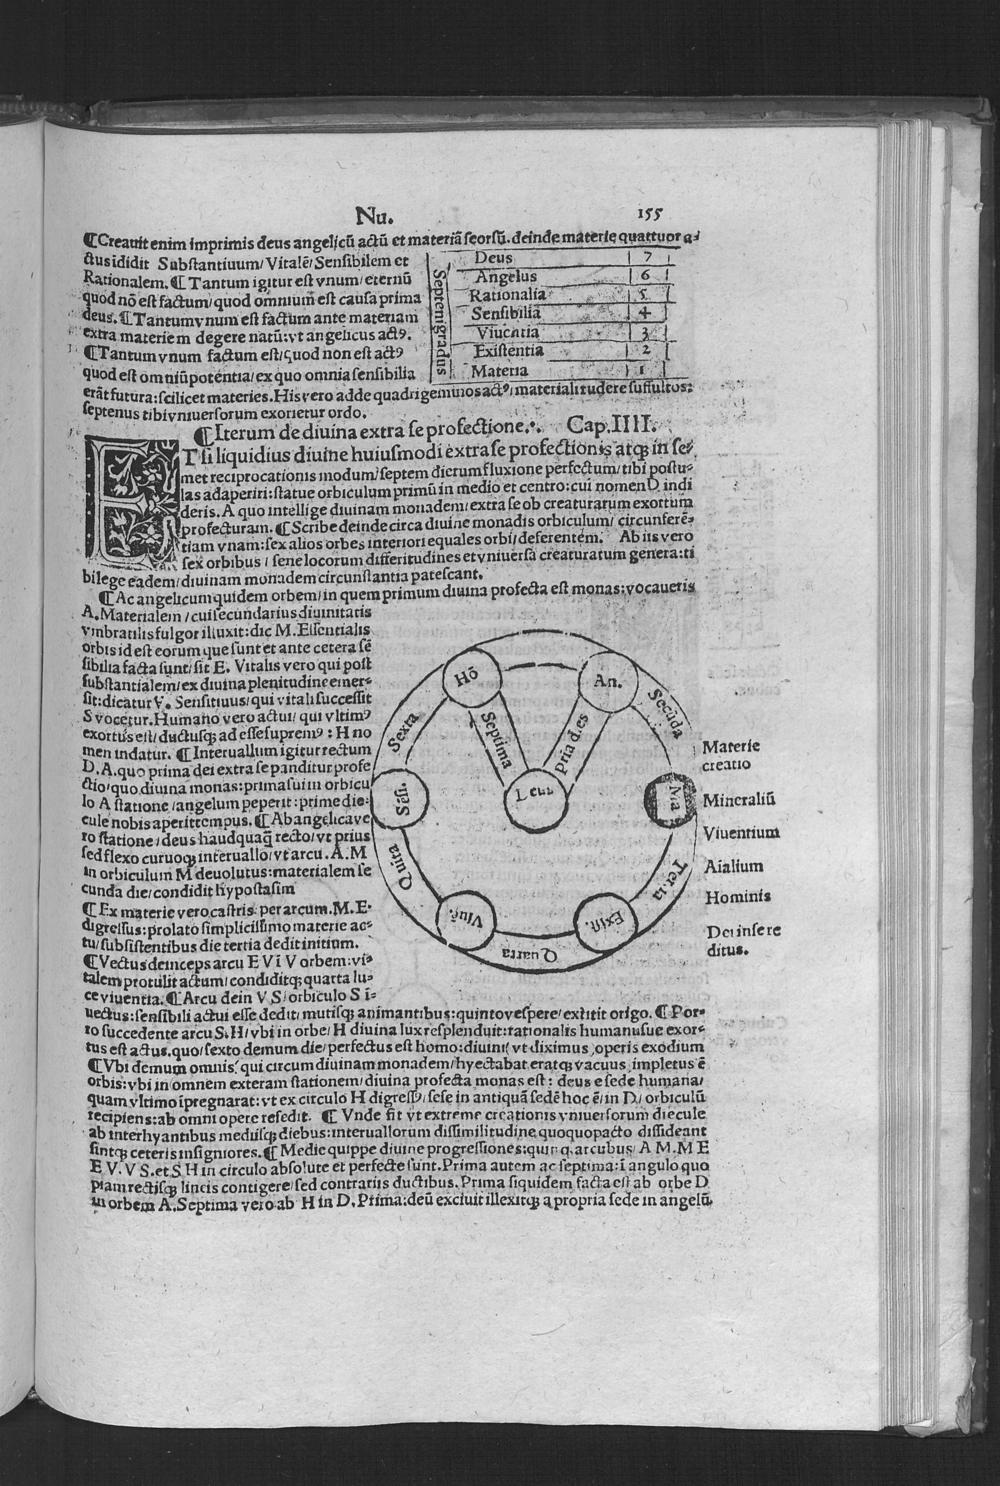 Nu.
155
¶Creauit enim imprimis deus angelicū actū et materiā seorsū. deinde materie quattuor a-
ctus ididit Substantiuum/Vitalē/Sensibilem et
Rationalem. ¶Tantum igitur est vnum/eternū
quod nō est factum/quod omnium est causa prima
deus. ¶Tantum vnum est factum ante materiam
extra materiem degere natū: vt angelicus actꝰ.
¶Tantum vnum factum est/quod non est actꝰ
quod est omniū potentia/ex quo omnia sensibilia
erāt futura: scilicet materies. His vero adde quadrigeminos actꝰ/materiali rudere suffultos:
septenus tibi vniuersorum exorietur ordo.
Septenigradus
Deus 7
Angelus 6
Rationalia 5
Sensibilia 4
Viuentia 3
Existentia 2
Materia 1
¶Iterum de diuina extra se profectione. Cap.IIII.
ET si liquidius diuine huiusmodi extra se profectionis atqꝫ in se-
met reciprocationis modum/septem dierum fluxione perfectum/tibi postu-
las adaperiri: statue orbiculum primū in medio et centro: cui nomen D. indi
deris. A quo intellige diuinam monadem/extra se ob creaturarum exortum
profecturam. ¶Scribe deinde circa diuine monadis orbiculum/circunferē-
tiam vnam: sex alios orbes interiori equales orbi/deferentem. Ab iis vero
sex orbibus/sene locorum differitudines et vniuersa creaturatum genera: ti
bi lege eadem/diuinam monadem circunstantia patescant.
¶Ac angelicum quidem orbem/in quem primum diuina profecta est monas: vocaueris
A. Materialem/cui secundarius diuinitatis
vmbratilis fulgor illuxit: dic M. Essentialis
orbis id est eorum que sunt et ante cetera sē
sibilia facta sunt/sit E. Vitalis vero qui post
substantialem/ex diuina plenitudine emer-
sit: dicatur V. Sensitiuus/qui vitali successit
S vocetur. Humano vero actui/qui vltimꝰ
exortus est/ductusqꝫ ad esse supremꝰ: H no
men indatur. ¶Interuallum igitur rectum
D. A. quo prima dei extra se panditur profe
ctio/quo diuina monas: prima sui in orbicu
lo A statione/angelum peperit: prime die-
cule nobis aperit tempus. ¶Ab angelica ve
ro statione/deus haudquaq̄ recto/vt prius
sed flexo curuoqꝫ interuallo/vt arcu. A. M
in orbiculum M deuolutus: materialem se
cunda die/condidit hypostasim
¶Ex materie vero castris per arcum. M. E.
digressus: prolato simplicissimo materie ac-
tu/subsistentibus die tertia dedit initium.
¶Vectus deinceps arcu E V i V orbem: vi-
talem protulit actum/condiditqꝫ quarta lu-
ce viuentia. ¶Arcu dein V S/orbiculo S ī-
uectus: sensibili actui esse dedit/mutisqꝫ animantibus: quinto vespere/extitit origo. ¶Por-
ro succedente arcu S.H/vbi in orbe/H diuina lux resplenduit: rationalis humanusue exor-
tus est actus. quo/sexto demum die/perfectus est homo: diuini/vt diximus/operis exodium
¶Vbi demum omnis/qui circum diuinam monadem/hyectabat eratqꝫ vacuus impletus ē
orbis: vbi in omnem exteram stationem/diuina profecta monas est: deus e sede humana/
quam vltimo īpregnarat: vt ex circulo H digressꝰ/sese in antiquā sedē hoc ē/in D/orbiculū
recipiens: ab omni opere resedit. ¶Vnde fit vt extreme creationis vniuersorum diecule
ab interhyantibus mediisqꝫ diebus: interuallorum dissimilitudine quoquo pacto dissideant
sintqꝫ ceteris insigniores. ¶Medie quippe diuine progressiones: quinqꝫ arcubus/A M. M E
E V. V S. et S H in circulo absolute et perfecte sunt. Prima autem ac septima: ī angulo quo
piam rectisqꝫ lineis contigere/sed contrariis ductibus. Prima siquidem facta est ab orbe D
in orbem A. Septima vero ab H in D. Prima: deū exciuit illexitqꝫ a propria sede in angelū.
Hō
An.
Sēsi.
Ma
Viuē.
Exist.
Septima
Pria d.es
Secūda
Ter.ia
Quarta
Quīta
Sexta
Materie
creatio
Mineraliū
Viuentium
Aialium
Hominis
Dei in se re
ditus.